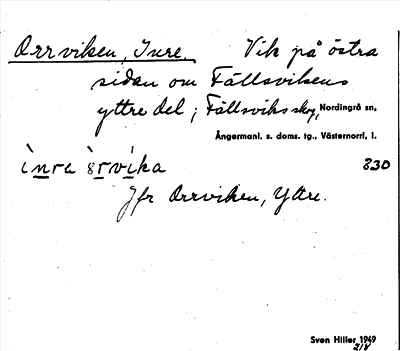 Orrviken, Inre. Vik på östra
sidan om Fällsvikens
yttre del; Fällsviks skog, Nordingrå sn,
Ångermanl. s. doms. tg., Västernorrl, l.
ìnra 830
Jfr Orrviken, Yttre.
Sven Hiller 1949
21/8